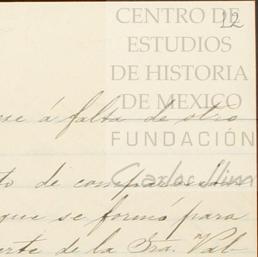 CENTRO DE
22
ESTUDIOS
DE HISTORIA
DE MEXICO
á falta de otro
FUNDACIÓN
Carlos Slim
to de
que se formó para
de la Sra. Val